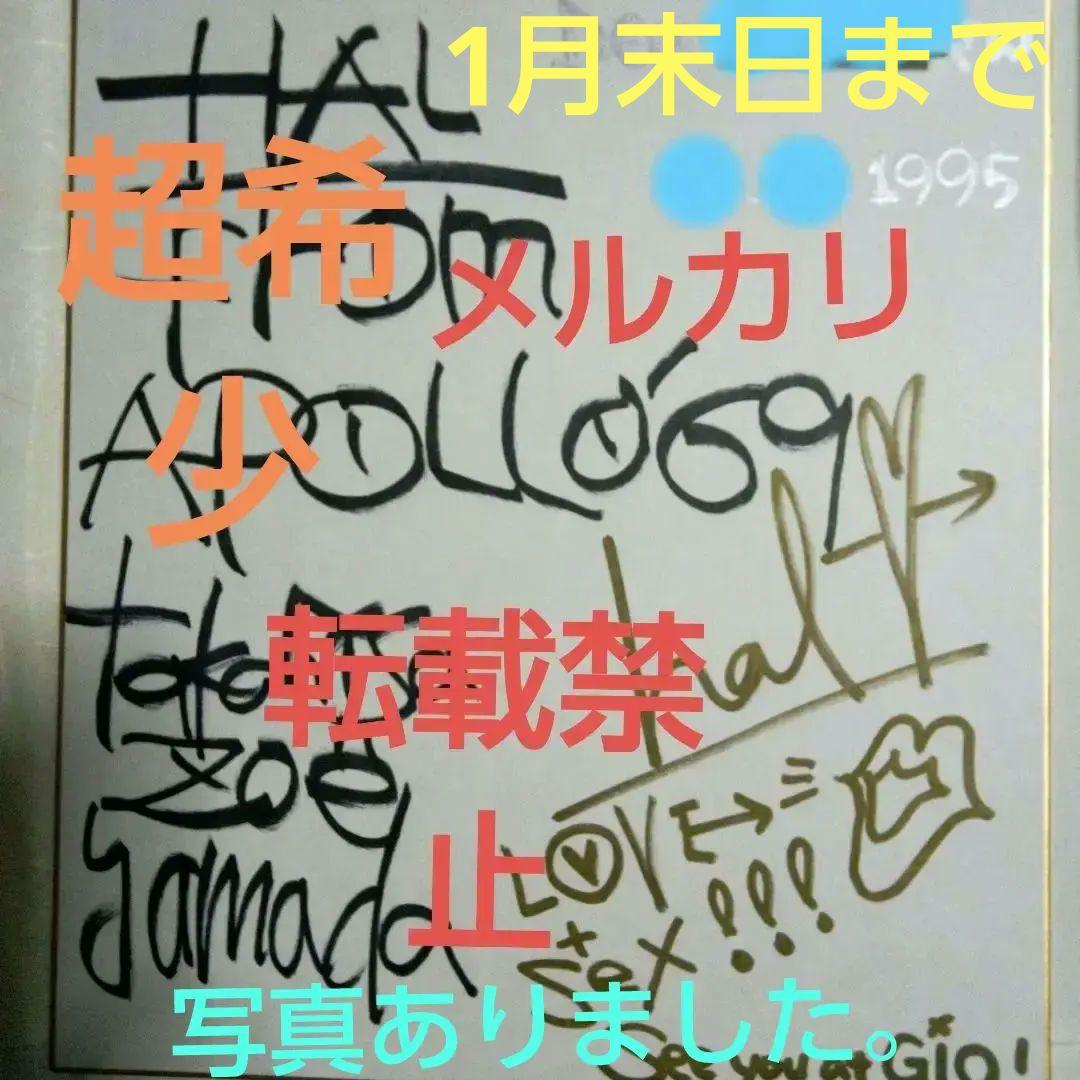 1月末日まで
HAL
1995
超希
from
メルカリ
少
APOLLO'69
Hal
転載禁
Zoe
LOVE
yamada
止
!!!
SEX
写真ありました。
See you at Gio!